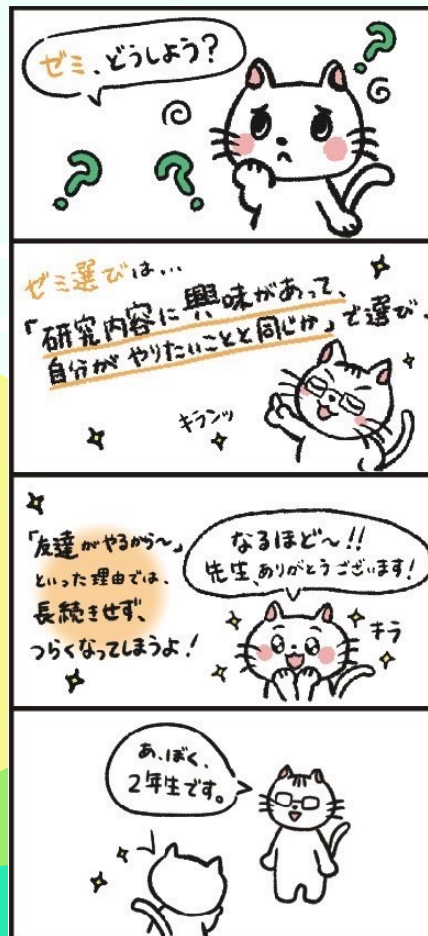 ゼミ、どうしよう?
ゼミ選びは…
「研究内容に興味があって、
自分がやりたいことと同じか」で選び、
キランッ
「友達がやるから〜」
といった理由では、
長続きせず、
つらくなってしまうよ!
なるほど〜!!
先生、ありがとうございます!
キラ
あ、ぼく、
2年生です。